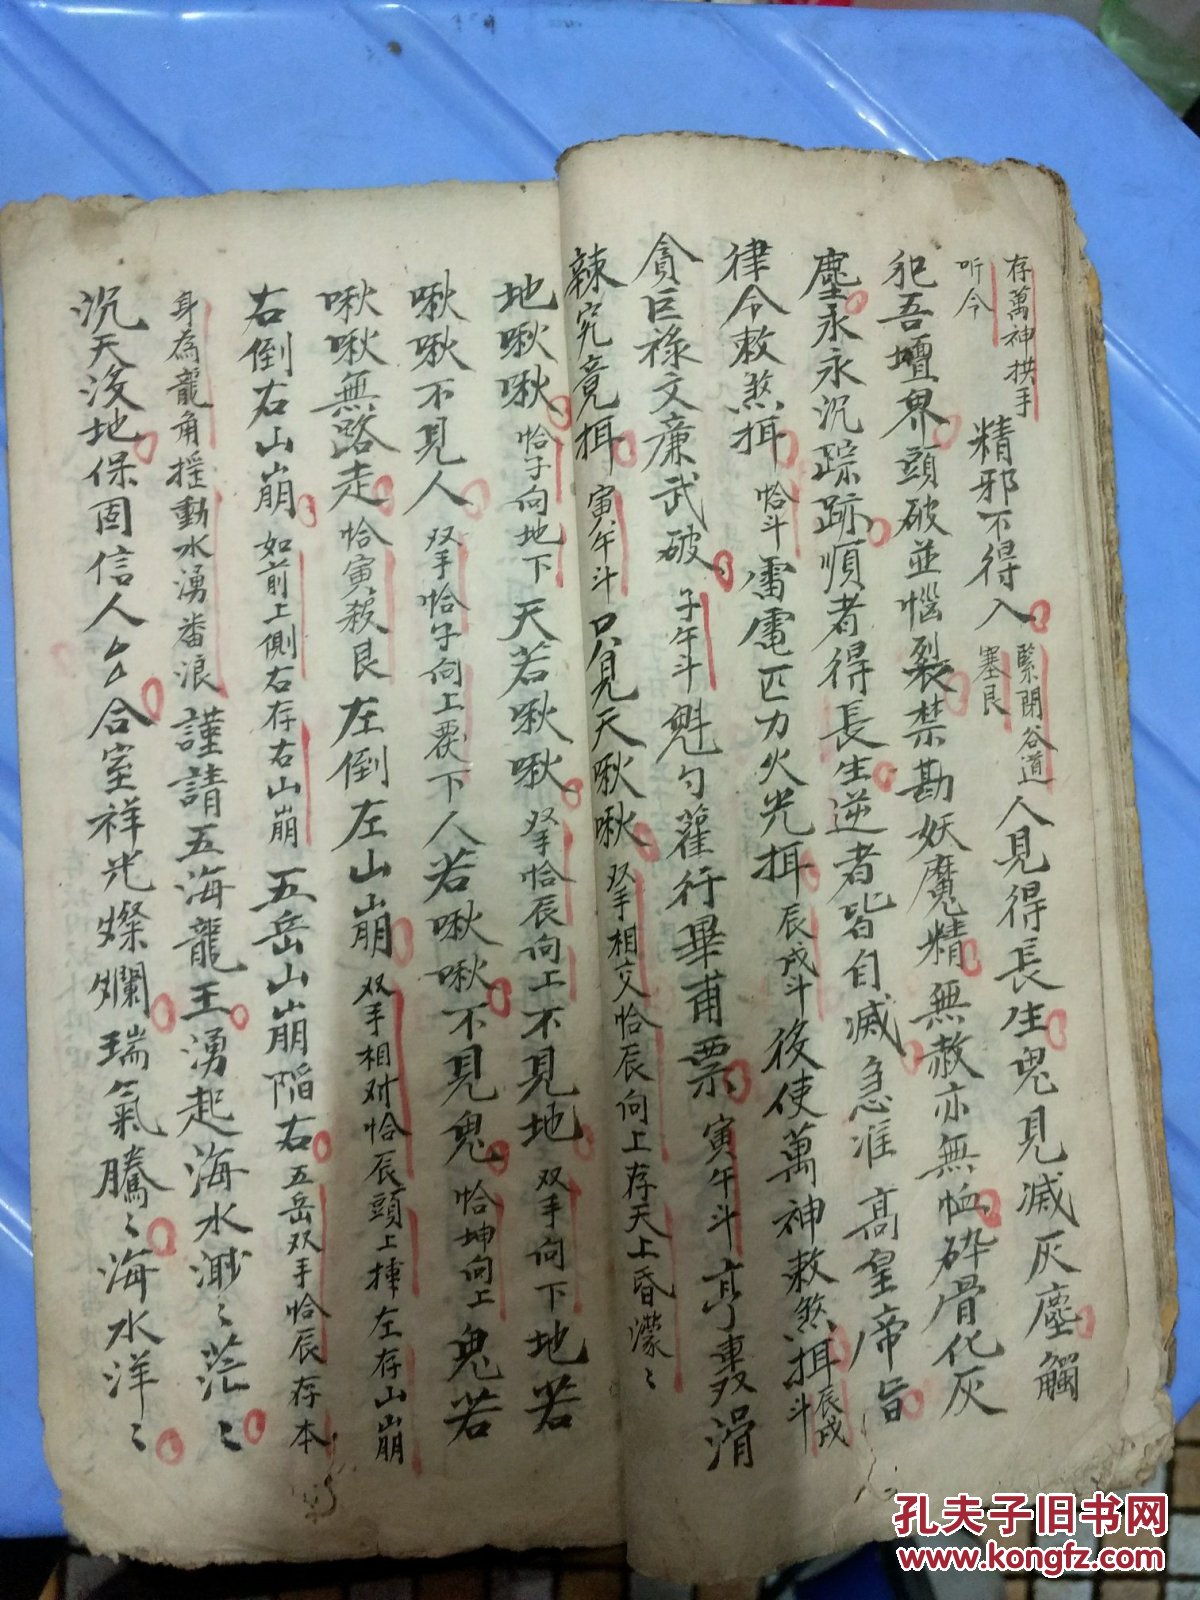 存萬神拱手听令精邪不得入緊閉谷道塞艮人見得長生鬼見滅灰塵觸
犯吾壇界頭破並惱裂禁勘妖魔精無赦亦無恤碎骨化灰
塵永永沉踪跡順者得長生逆者皆自滅急准高皇帝旨
律令敕煞挕恰斗雷電匹力火光挕辰戌斗後使萬神敕煞挕辰戌斗
貪巨祿文廉武破子午斗魁勺雚行畢甫票寅午斗
辣究竟挕寅午斗只見天啾啾双手相交恰辰向上存天上昏濛〻
地啾啾恰子向地下天若啾啾双手恰辰向上不見地双手向下地若
啾啾不見人双手恰子向上覆下人若啾啾不見鬼恰坤向上鬼若
啾啾無路走恰寅殺艮左倒左山崩双手相对恰辰頭上揰左存山崩
右倒右山崩如前上側右存右山崩五岳山崩陷右五岳双手恰辰存本
身為龍角搖動水湧番浪謹請五海龍王湧起海水渺〻茫〻
沉天沒地保固信人厶厶合室祥光燦爛瑞氣騰〻海水洋〻
孔夫子旧书网
www.kongfz.com